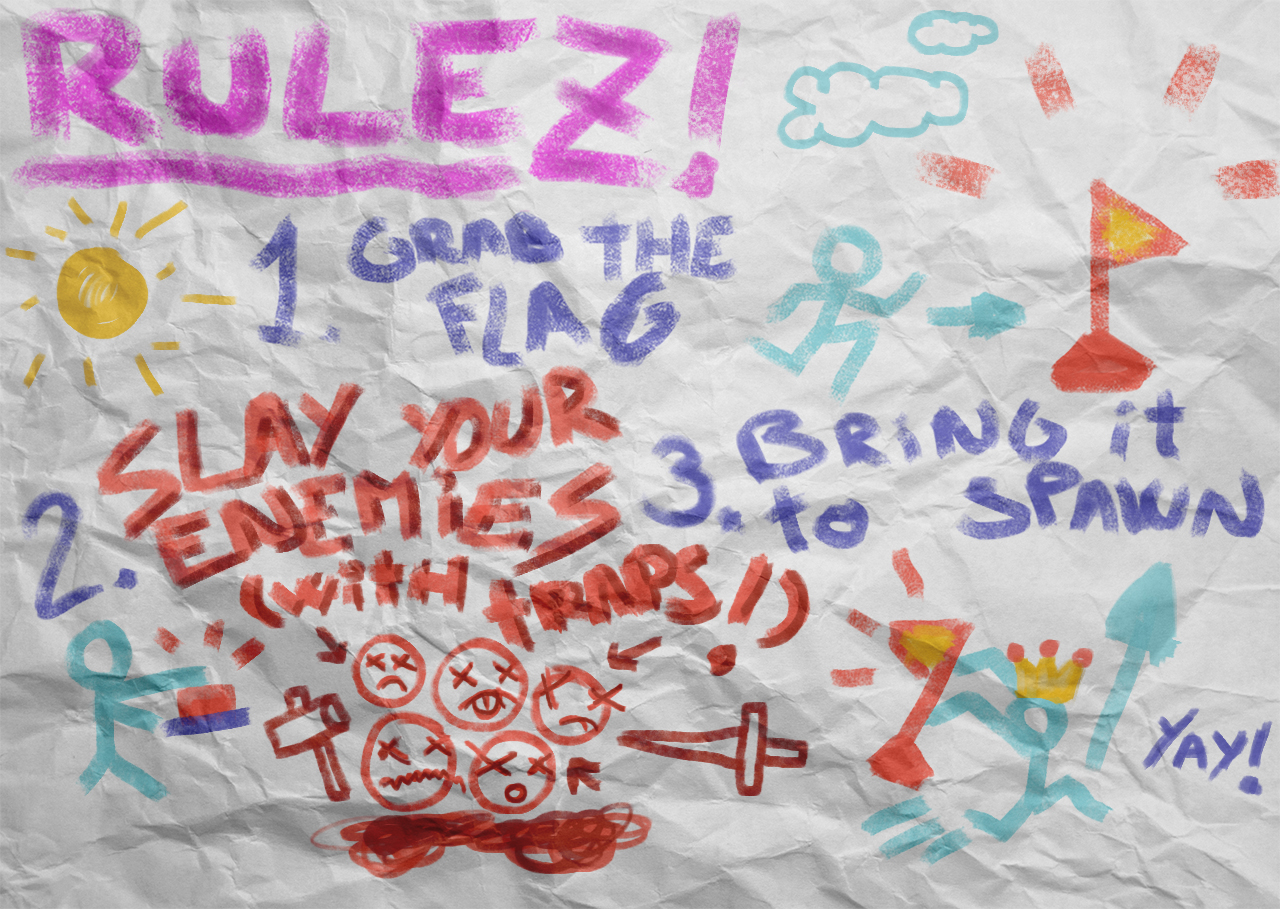 RULEZ!
1. GRAB THE
FLAG
2. SLAY YOUR
ENEMiES
(with tRAPS!)
3. BRiNG it
to SPAWN
YAY!